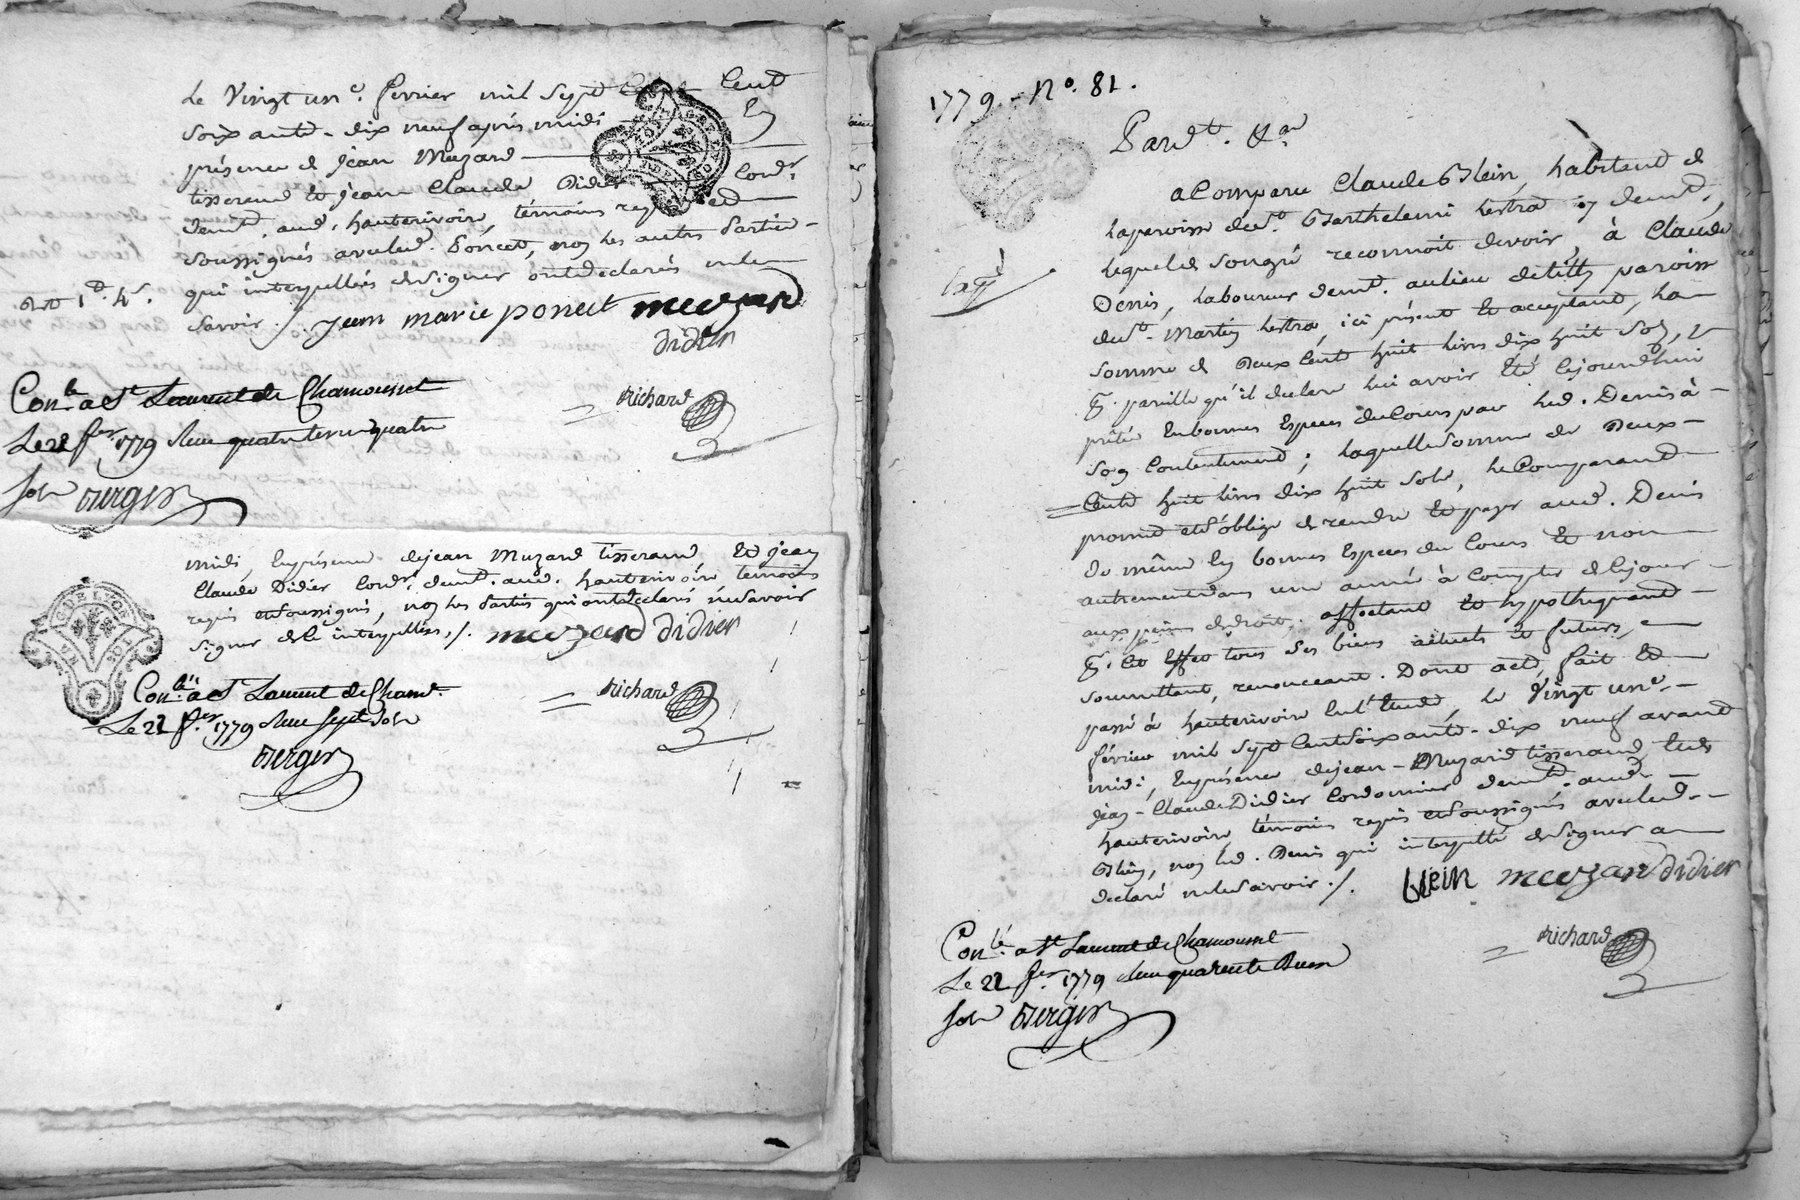 Le Vingt un.e fevrier mil Sept Cent
Soixante-dix neuf après midi
présence de Jean Muzard
tisserand et Jean Claude Didier Cord.r
demt. aud. hauterivoire, témoins requis
soussignés avec led. Poncet, non les autres Parties
qui interpellées de signer ont déclarés ne le
savoir ./. jean marie poncet muzard
didier
Richard
Con.lé a St Laurent de Chamousset
Le 22 fer. 1779 Reçu quatre
Sols Berger
midi, En présence de jean Muzard tisserand et jean
Claude Didier Cord.r demt. aud. hauterivoire, temoins
requis et soussignés, non les Parties qui ont déclaré ne savoir
signer de ce interpellées ./. muzard didier
Richard
Con.lé a St Laurent de Cham.t
Le 22 fer. 1779 Reçu Sept Sols
Berger
1779 - No. 81.
Pard.t &a.
a Comparu Claude Blein, habitant de
la paroisse de St. Barthelemi Lestra y demt.,
lequel de son gré reconnoit devoir, à Claude
Denis, laboureur demt. au lieu de paroisse
de St. Martin Lestra, ici présent et acceptant, la
somme de Deux Cent huit livres dix huit sols,
pareille qu'il declare lui avoir été cejourd'hui
prêtée En bonnes Especes du Cours par led. Denis à
son Contentement ; laquelle somme de Deux
Cent huit livres dix huit sols, le Comparant
promet et s'oblige de rendre et payer aud. Denis
de même En bonnes Especes du Cours et non
autrement dans une année à Compter de Cejour
aux peines de droit. affectant et hypothequant
à Cet Effet tous ses biens actuels et futurs,
soumettant, renonceant. Dont acte, fait et
passé à hauterivoire En l'Etude, le Vingt un.e
février mil Sept Cent Soixante-dix neuf avant
midi, En présence de jean Muzard tisserand, et de
jean-Claude Didier Cordonnier demt. aud.
hauterivoire, témoins requis et soussignés avec led.
Blein, non led. Denis qui interpellé de signer a
declaré ne le savoir ./. blein muzard didier
Richard
Con.lé a St Laurent de Chamousset
Le 22 fer. 1779 Reçu quarente Deux
Sols Berger